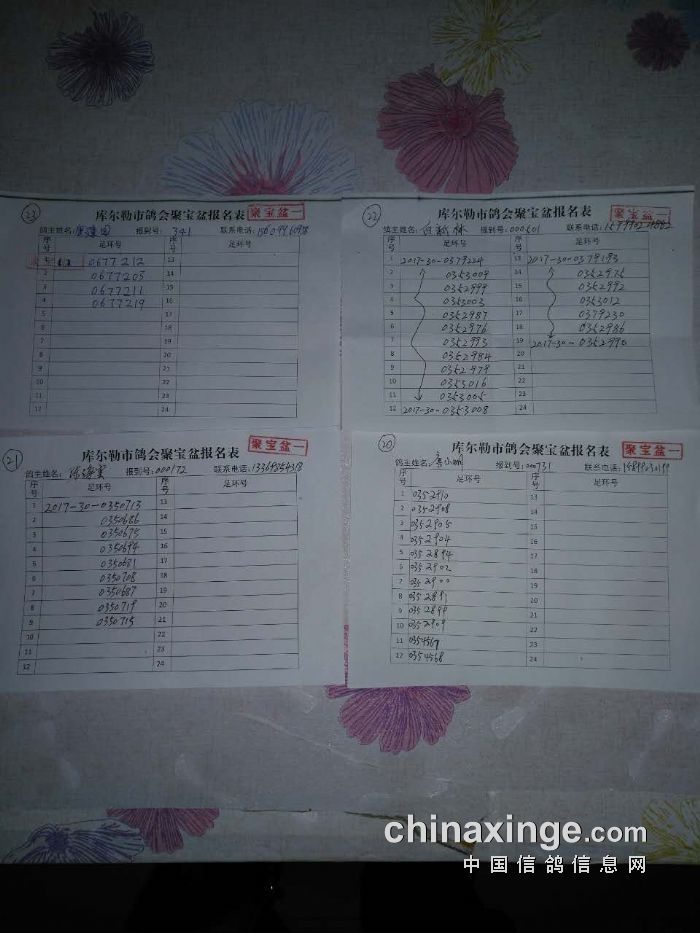 23
库尔勒市鸽会聚宝盆报名表
聚宝盆一
鸽主姓名: 报到号: 341 联系电话:
序号 足环号 序号 足环号
0677212 13
2 0677205 14
3 0677211 15
4 0677219 16
5 17
6 18
7 19
8 20
9 21
10 22
11 23
12 24
22
库尔勒市鸽会聚宝盆报名表
聚宝盆一
鸽主姓名: 报到号: 000601 联系电话:
序号 足环号 序号 足环号
1 2017-30-0379224 13 2017-30-0379193
2 0353009 14 0352975
3 0352999 15 0352992
4 0353003 16 0353012
5 0352987 17 0379230
6 0352976 18 0352986
7 0352993 19 2017-30-0352990
8 0352984 20
9 0352979 21
10 0353016 22
11 0353005 23
12 2017-30-0353008 24
21
库尔勒市鸽会聚宝盆报名表
聚宝盆一
鸽主姓名: 报到号: 000172 联系电话:
序号 足环号 序号 足环号
1 2017-30-0350713 13
2 0350686 14
3 0350675 15
4 0350694 16
5 0350681 17
6 0350708 18
7 0350687 19
8 0350719 20
9 0350715 21
10 22
11 23
12 24
20
库尔勒市鸽会聚宝盆报名表
聚宝盆一
鸽主姓名: 报到号: 000731 联系电话:
序号 足环号 序号 足环号
1 0352910 13
2 0352908 14
3 0352905 15
4 0352904 16
5 0352894 17
6 0352902 18
7 0352900 19
8 0352891 20
9 0352899 21
10 0352909 22
11 0354567 23
12 0354568 24
chinaxinge.com
中国信鸽信息网